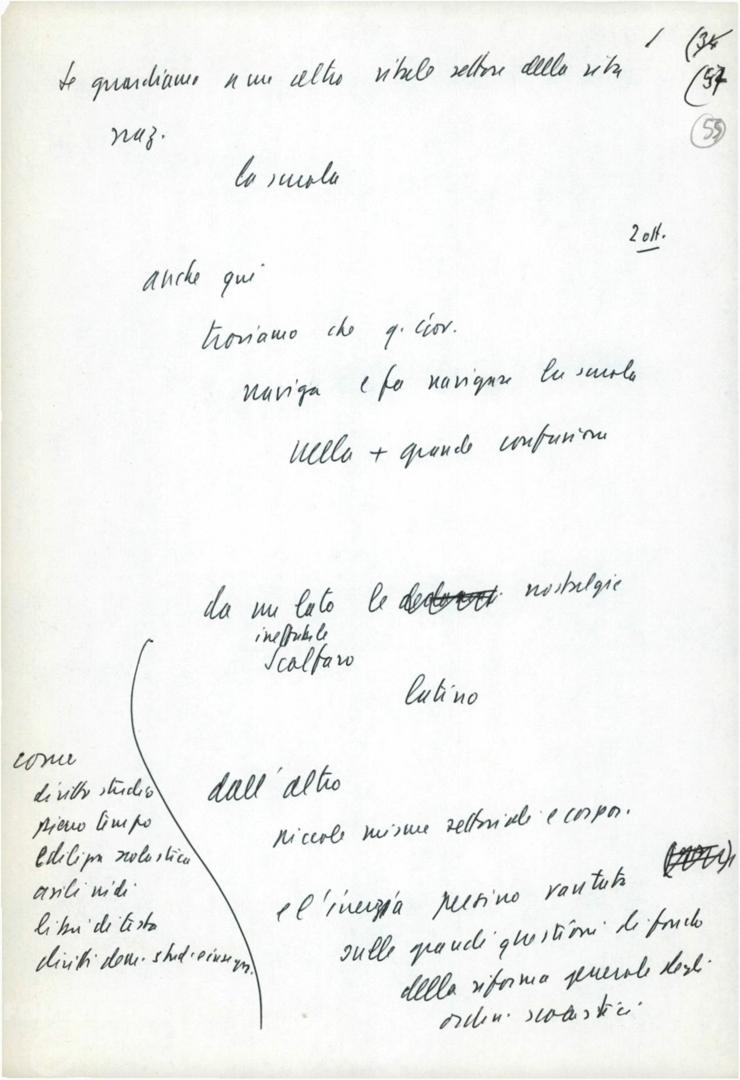 / (34
Se guardiamo a un altro vitale settore della vita
(54
naz.
55
la scuola
2 ott.
anche qui
troviamo che q. Gov.
naviga e fa navigare la scuola
nella + grande confusione
da un lato le nostalgie
ineffabile
Scalfaro
latino
come
diritto studio
dall'altro
pieno tempo
piccole misure settoriali e corpor.
edilizia scolastica
asili nidi
e l'inerzia persino vantata
libri di testo
sulle grandi questioni di fondo
diritti dem. stud. e insegn.
della riforma generale degli
ordin. scolastici